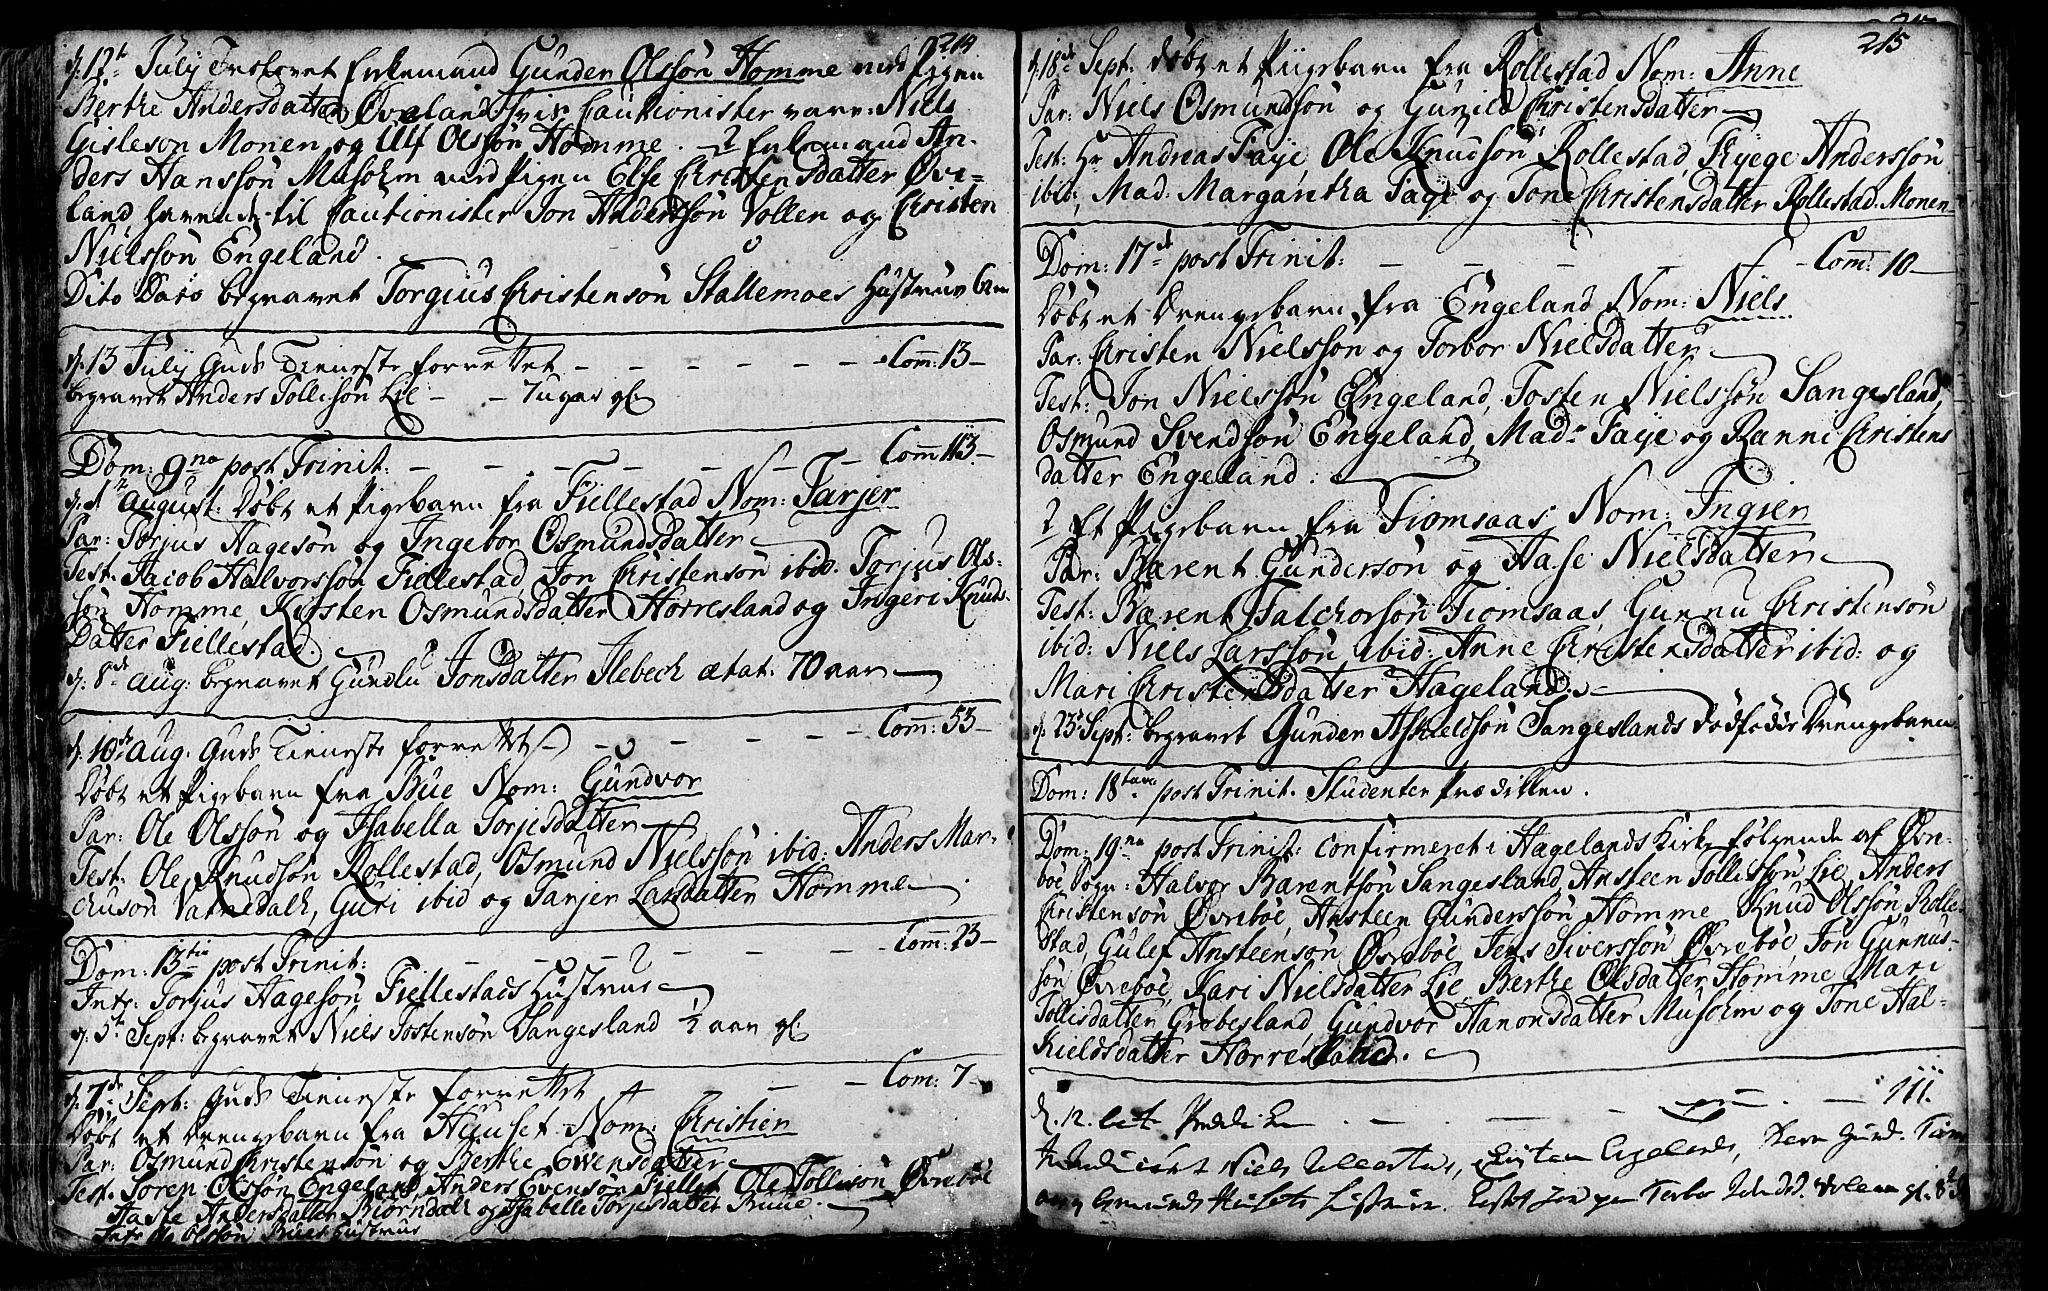 214
d: 12te July Troloved Enkemand Gunder Olssøn Homme med Pigen
Berthe Andersdatter Øveland hvis Cautionister vare: Niels
Gisleson Monen og Ulf Olssøn Homme. 2 Enkemand An-
ders Hanssøn Musolm med Pigen Else Christensdatter Øve-
land, havende til Cautionister Jon Anderssøn Vollen og Christen
Nielssøn Engeland.
Dito Dato begravet Torgius Christensøn Stallemoes Hustrue
d: 13 July Guds Tieneste forrettet - - - - - Com: 13 -
begravet Anders Tollissøn Lie - - 7 uger gl:
Dom: 9na post Trinit: - - - - - - Com: 113 -
d: August: Døbt et Pigebarn fra Fiellestad Nom: Tarjer
Par: Torjus Aagesøn og Ingebor Osmundsdatter
Test: Jacob Halvorssøn Fiellestad, Jon Christensøn ibid. Torjus Ols-
søn Homme, Kirsten Osmundsdatter Horresland og Ingeri Knuds-
Datter Fiellestad.
d: 8de Aug: begravet Gunlu Jonsdatter Ilebech ætat: 70 aar
d: 10de Aug: Guds Tieneste forrettet - - - - - Com: 53 -
Døbt et Pigebarn fra Bue Nom: Gundvor
Par: Ole Olssøn og Isabella Torjesdatter
Test: Ole Knudsøn Rollestad, Osmund Nielssøn ibid: Anders Mar-
chusøn Vatnedalh, Guri ibid og Tarjer Larsdatter Homme
Dom: 13tia post Trinit: - - - - - Com: 23 -
Intr: Torjus Aagesøn Fiellestads Hustrue
d: 5te Sept: begravet Niels Tostensøn Sangesland 1/2 aar gl:
d: 7de Sept: Guds Tieneste forrettet - - Com: 7 -
Døbt et Drengebarn fra Hunset Nom: Christien
Par: Osmund Christensøn og Berthe Evensdatter
Test: Søren Olssøn Engeland, Anders Evensøn Ole Tollisøn Øvrebøe
Aaste Andersdatter Biorndalh og Isabelle Torjesdatter Buue.
Intr: Ole Olssøn Bues Hustrue
215
d: 18de Sept: Døbt et Piigebarn fra Rollestad Nom: Anne
Par: Niels Osmundsøn og Gunild Christensdatter
Test: Hr Andreas Faye, Ole Knudsøn Rollestad, Kyege Anderssøn
ibid, Mad: Margaretha Faye og Tone Christensdatter Rollestad. Monen
Dom: 17de post Trinit: - - - - - Com: 10 -
Døbt et Drengebarn fra Engeland Nom: Niels
Par: Christen Nielssøn og Torbor Nielsdatter
Test: Jon Nielssøn Engeland, Tosten Nielssøn Sangesland,
Osmund Svendsøn Engeland, Mad: Faye og Ranni Christens
datter Engeland.
2 Et Pigebarn fra Fiomsaas, Nom: Ingier
Par: Barent Gundersøn og Aase Nielsdatter
Test: Barent Falchorsøn Fiomsaas, Gunnu Christensøn
ibid: Niels Larssøn ibid: Anne Christensdatter ibid: og
Mari Christensdatter Hageland.
d: 23de Sept: begravet Gunder Askieldsøn Sangeslands dødfødde Drengebarn
Dom: 18tava post Trinit. Studenter prædikken.
Dom: 19na post Trinit: confirmeret i Hagelands Kirke følgende af Øvre-
bøe Sogn: Halvor Barentsøn Sangesland, Ansteen Tollissøn Lie, Anders
Christensøn Øvrebøe, Ansteen Gunderssøn Homme, Knud Olssøn Rolle-
stad, Gulef Ansteensøn Øvrebøe, Jens Siverssøn Øvrebøe, Jon Gunnus-
søn Øvrebøe, Kari Nielsdatter Lie, Berthe Olsdatter Homme, Mari
Tollisdatter Grobesland, Gundvor Aanonsdatter Musolm og Tone Hal-
kieldsdatter Horresland.
d. 12. - - - - - - 111.
Niels Christen Engelands,
Hustruer.